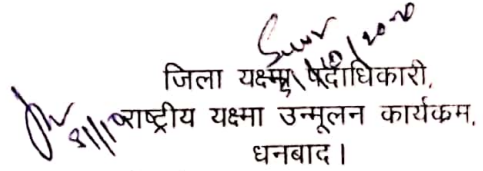 जिला यक्ष्मा पदाधिकारी,
राष्ट्रीय यक्ष्मा उन्मूलन कार्यकम,
धनबाद।